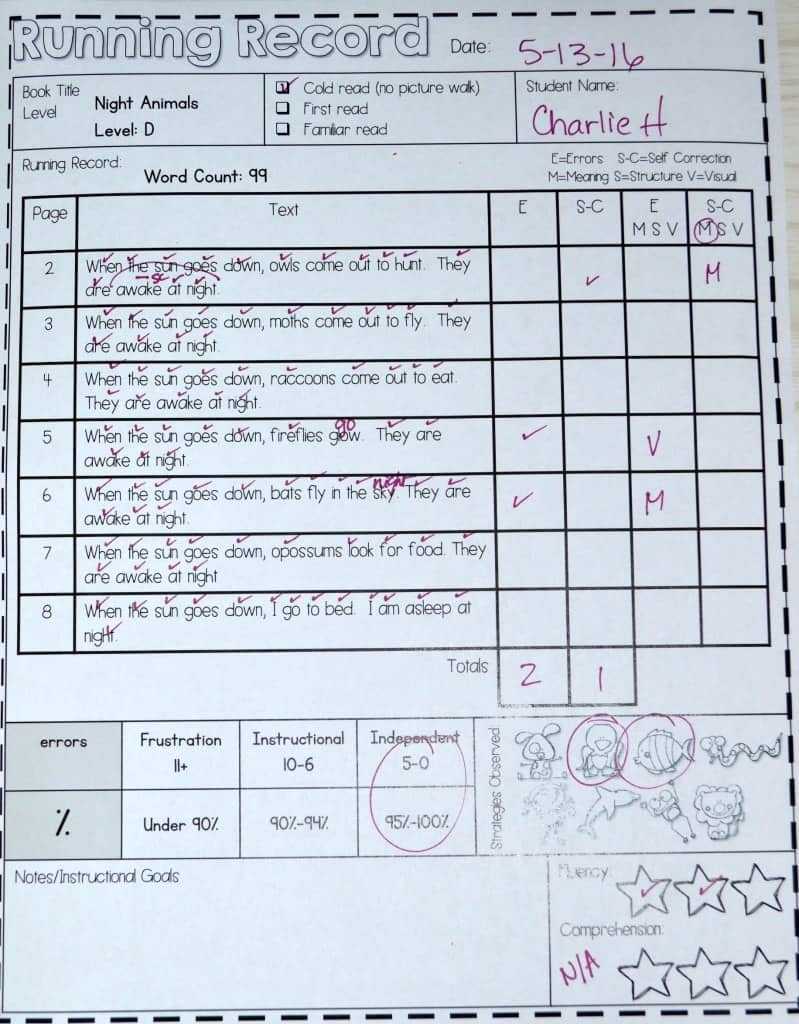 Running Record
Date: 5-13-16
Book Title
Level
Night Animals
Level: D
Cold read (no picture walk)
First read
Familiar read
Student Name:
Charlie H
Running Record:
Word Count: 99
E=Errors S-C=Self Correction
M=Meaning S=Structure V=Visual
Page Text E S-C E S-C
M S V M S V
2 When the sun goes down, owls come out to hunt. They M
sc
are awake at night.
3 When the sun goes down, moths come out to fly. They
are awake at night.
4 When the sun goes down, raccoons come out to eat.
They are awake at night.
go
5 When the sun goes down, fireflies glow. They are V
awake at night.
night
6 When the sun goes down, bats fly in the sky. They are M
awake at night.
7 When the sun goes down, opossums look for food. They
are awake at night
8 When the sun goes down, I go to bed. I am asleep at
night.
Totals 2 1
errors Frustration Instructional Independent
11+ 10-6 5-0
% Under 90% 90%-94% 95%-100%
Strategies Observed
Notes/Instructional Goals
Fluency:
Comprehension:
N/A